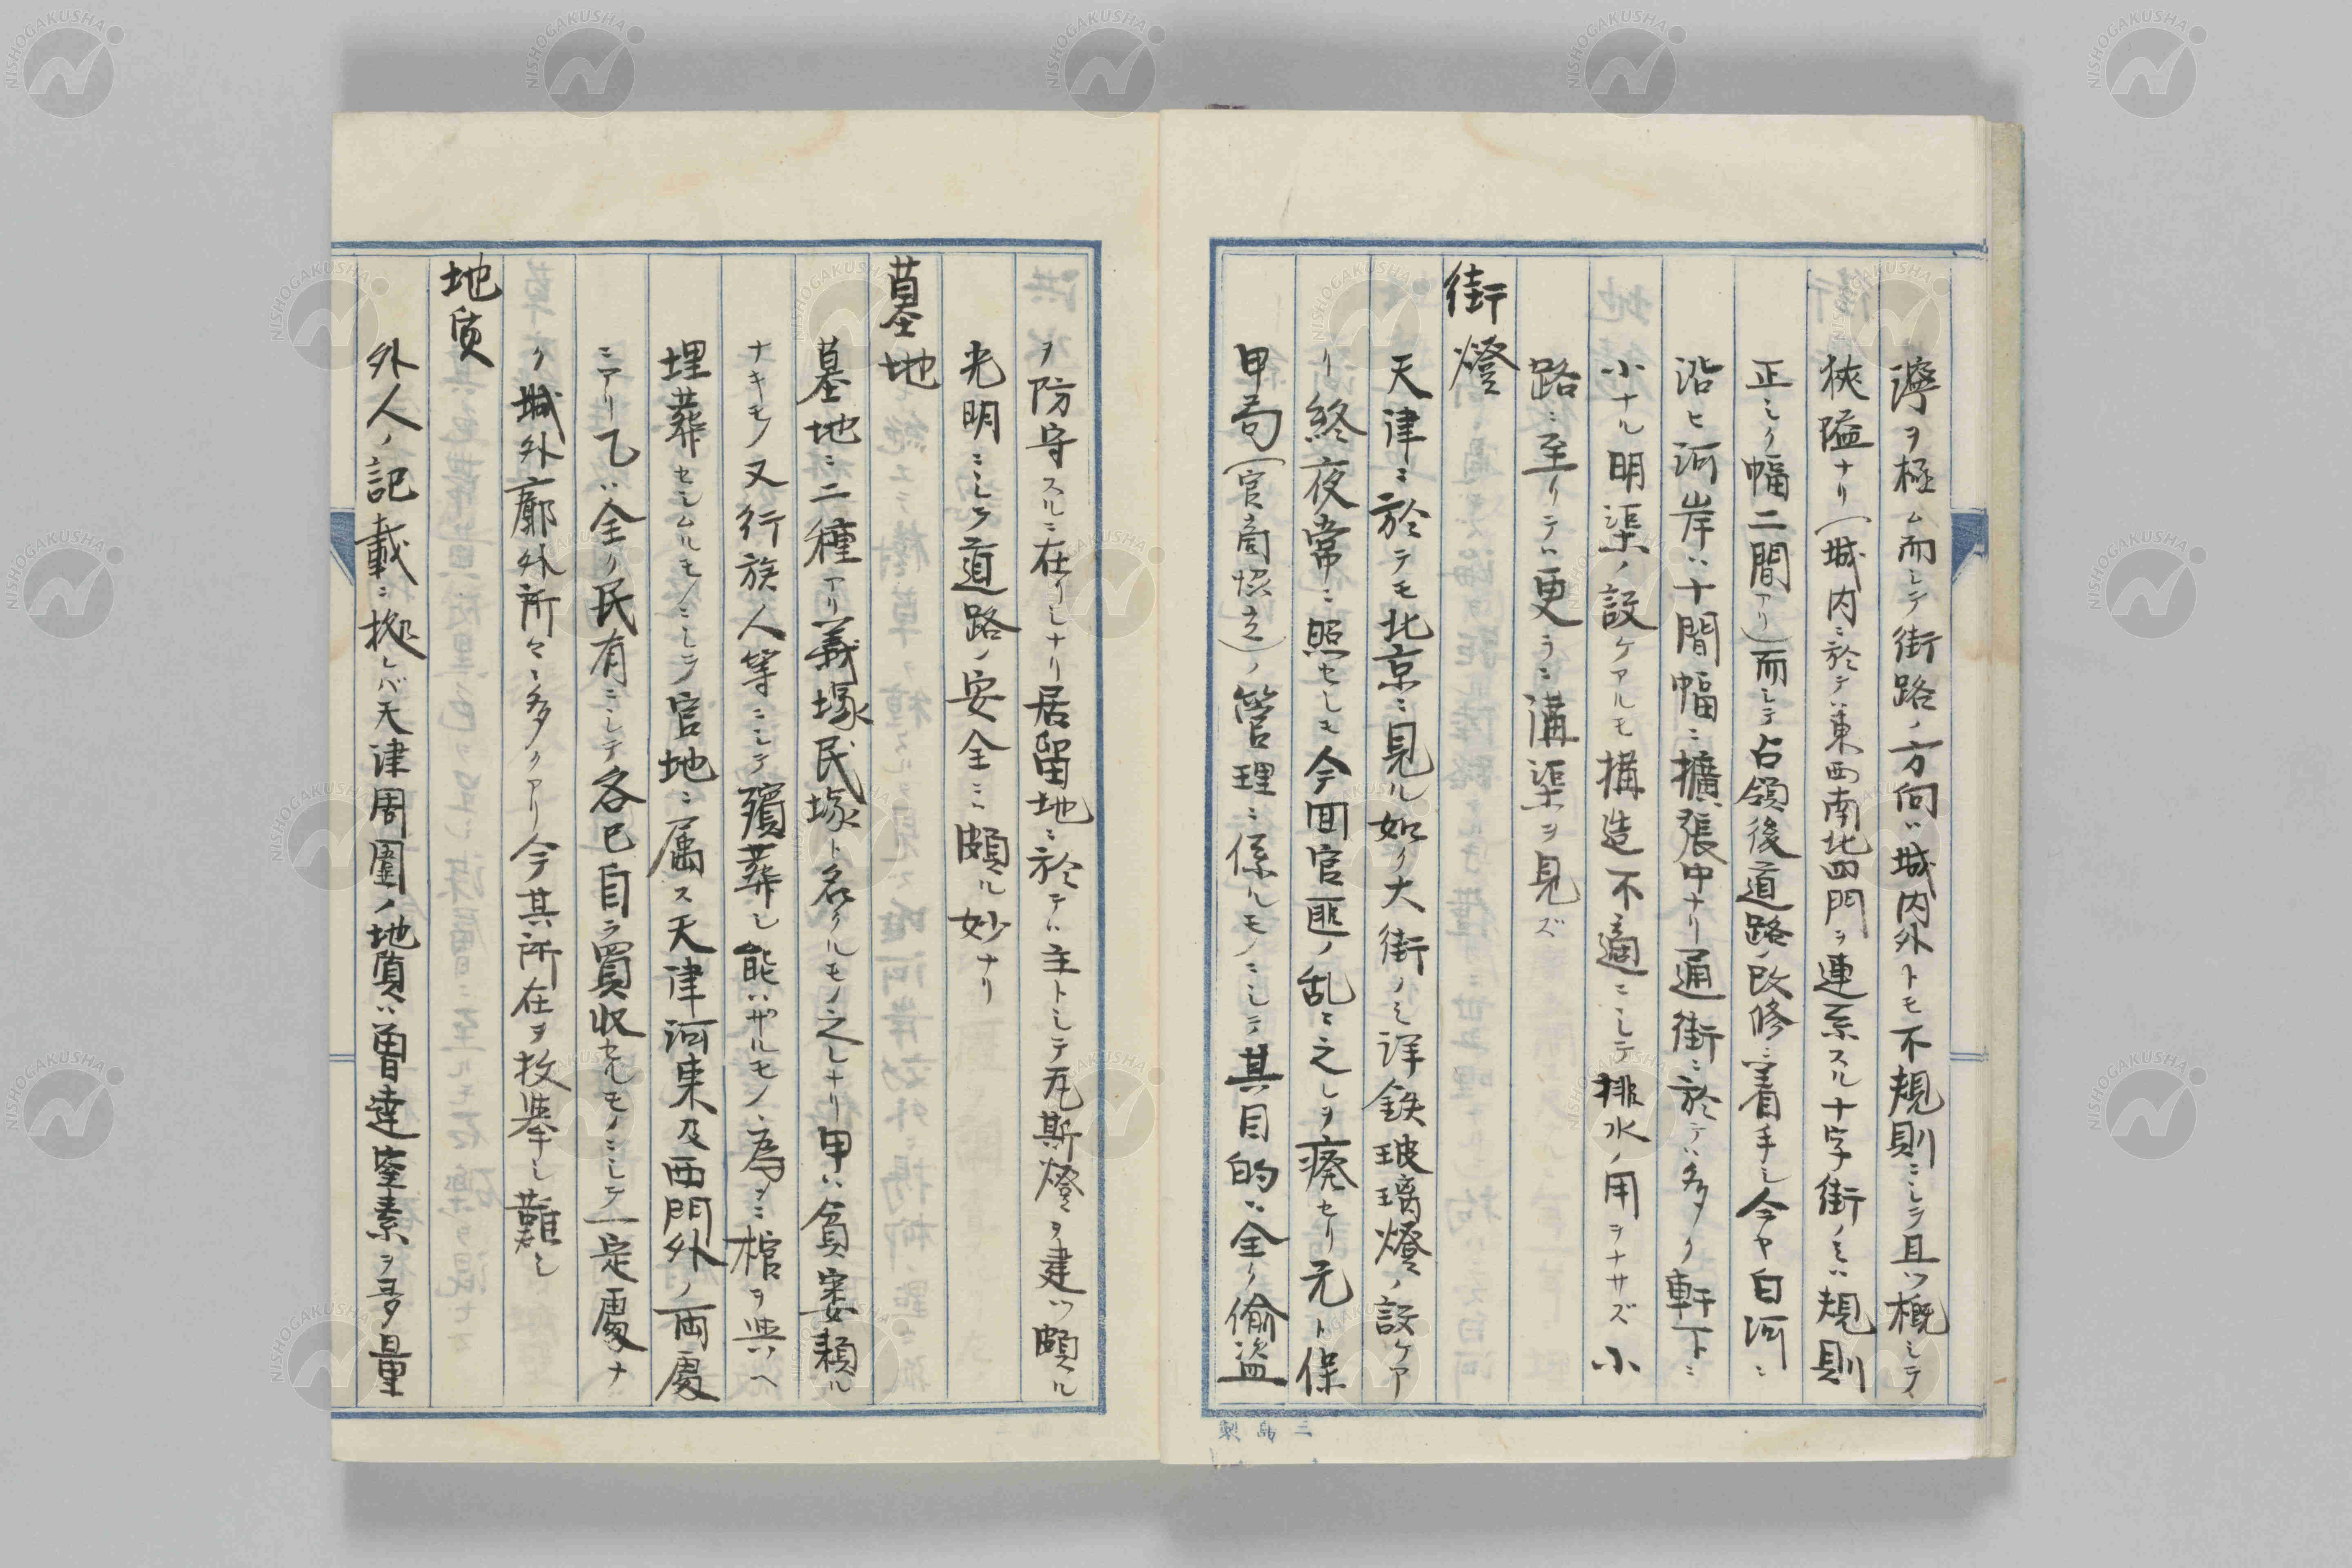 濘ヲ極ム而シテ街路ノ方向ハ城内外トモ不規則ニシテ且ツ概シテ
狹隘ナリ(城内ニ於テハ東西南北四門ヲ連系スル十字街ノミハ規則
正シク幅二間アリ)而シテ占領後道路ノ改修ニ着手シ今ヤ白河ニ
沿ヒ河岸ハ十間幅ニ擴張中ナリ通街ニ於テハ多ク軒下ニ
小ナル明渠ノ設ケアルモ搆造不適ニシテ排水ノ用ヲナサズ小
路ニ至リテハ更ラニ溝渠ヲ見ズ
街燈
天津ニ於テモ北京ニ見ル如ク大街ノミ洋鉄玻璃燈ノ設ケア
リ終夜常ニ照セシモ今回官匪ノ乱之レヲ癈セリ元ト保
甲局(官商惧立)ノ管理ニ係ルモノニシテ其目的ハ全ク偷盗
ヲ防守スルニ在リシナリ居留地ニ於テハ主トシテ瓦斯燈ヲ建ツ頗ル
光明ニシテ道路ノ安全ニハ頗ル妙ナリ
墓地
墓地ニ二種アリ義塚民塚ト名クルモノ之レナリ甲ハ貧寠頼ル
ナキモノ又行族人等ニシテ殯葬シ能ハザルモノヽ為メニ棺ヲ與ヘ
埋葬セシムルモノニシテ官地ニ属ス天津河東及西門外ノ両處
ニアリ乙ハ全ク民有ニシテ各己自ラ買収セルモノニシテ一定處ナ
ク城外廓外所々ニ多クアリ今其所在ヲ枚擧シ難シ
地质
外人ノ記載ニ拠レバ天津周圍ノ地質ハ曹達窒素ヲ多量
三島製
NISHOGAKUSHA